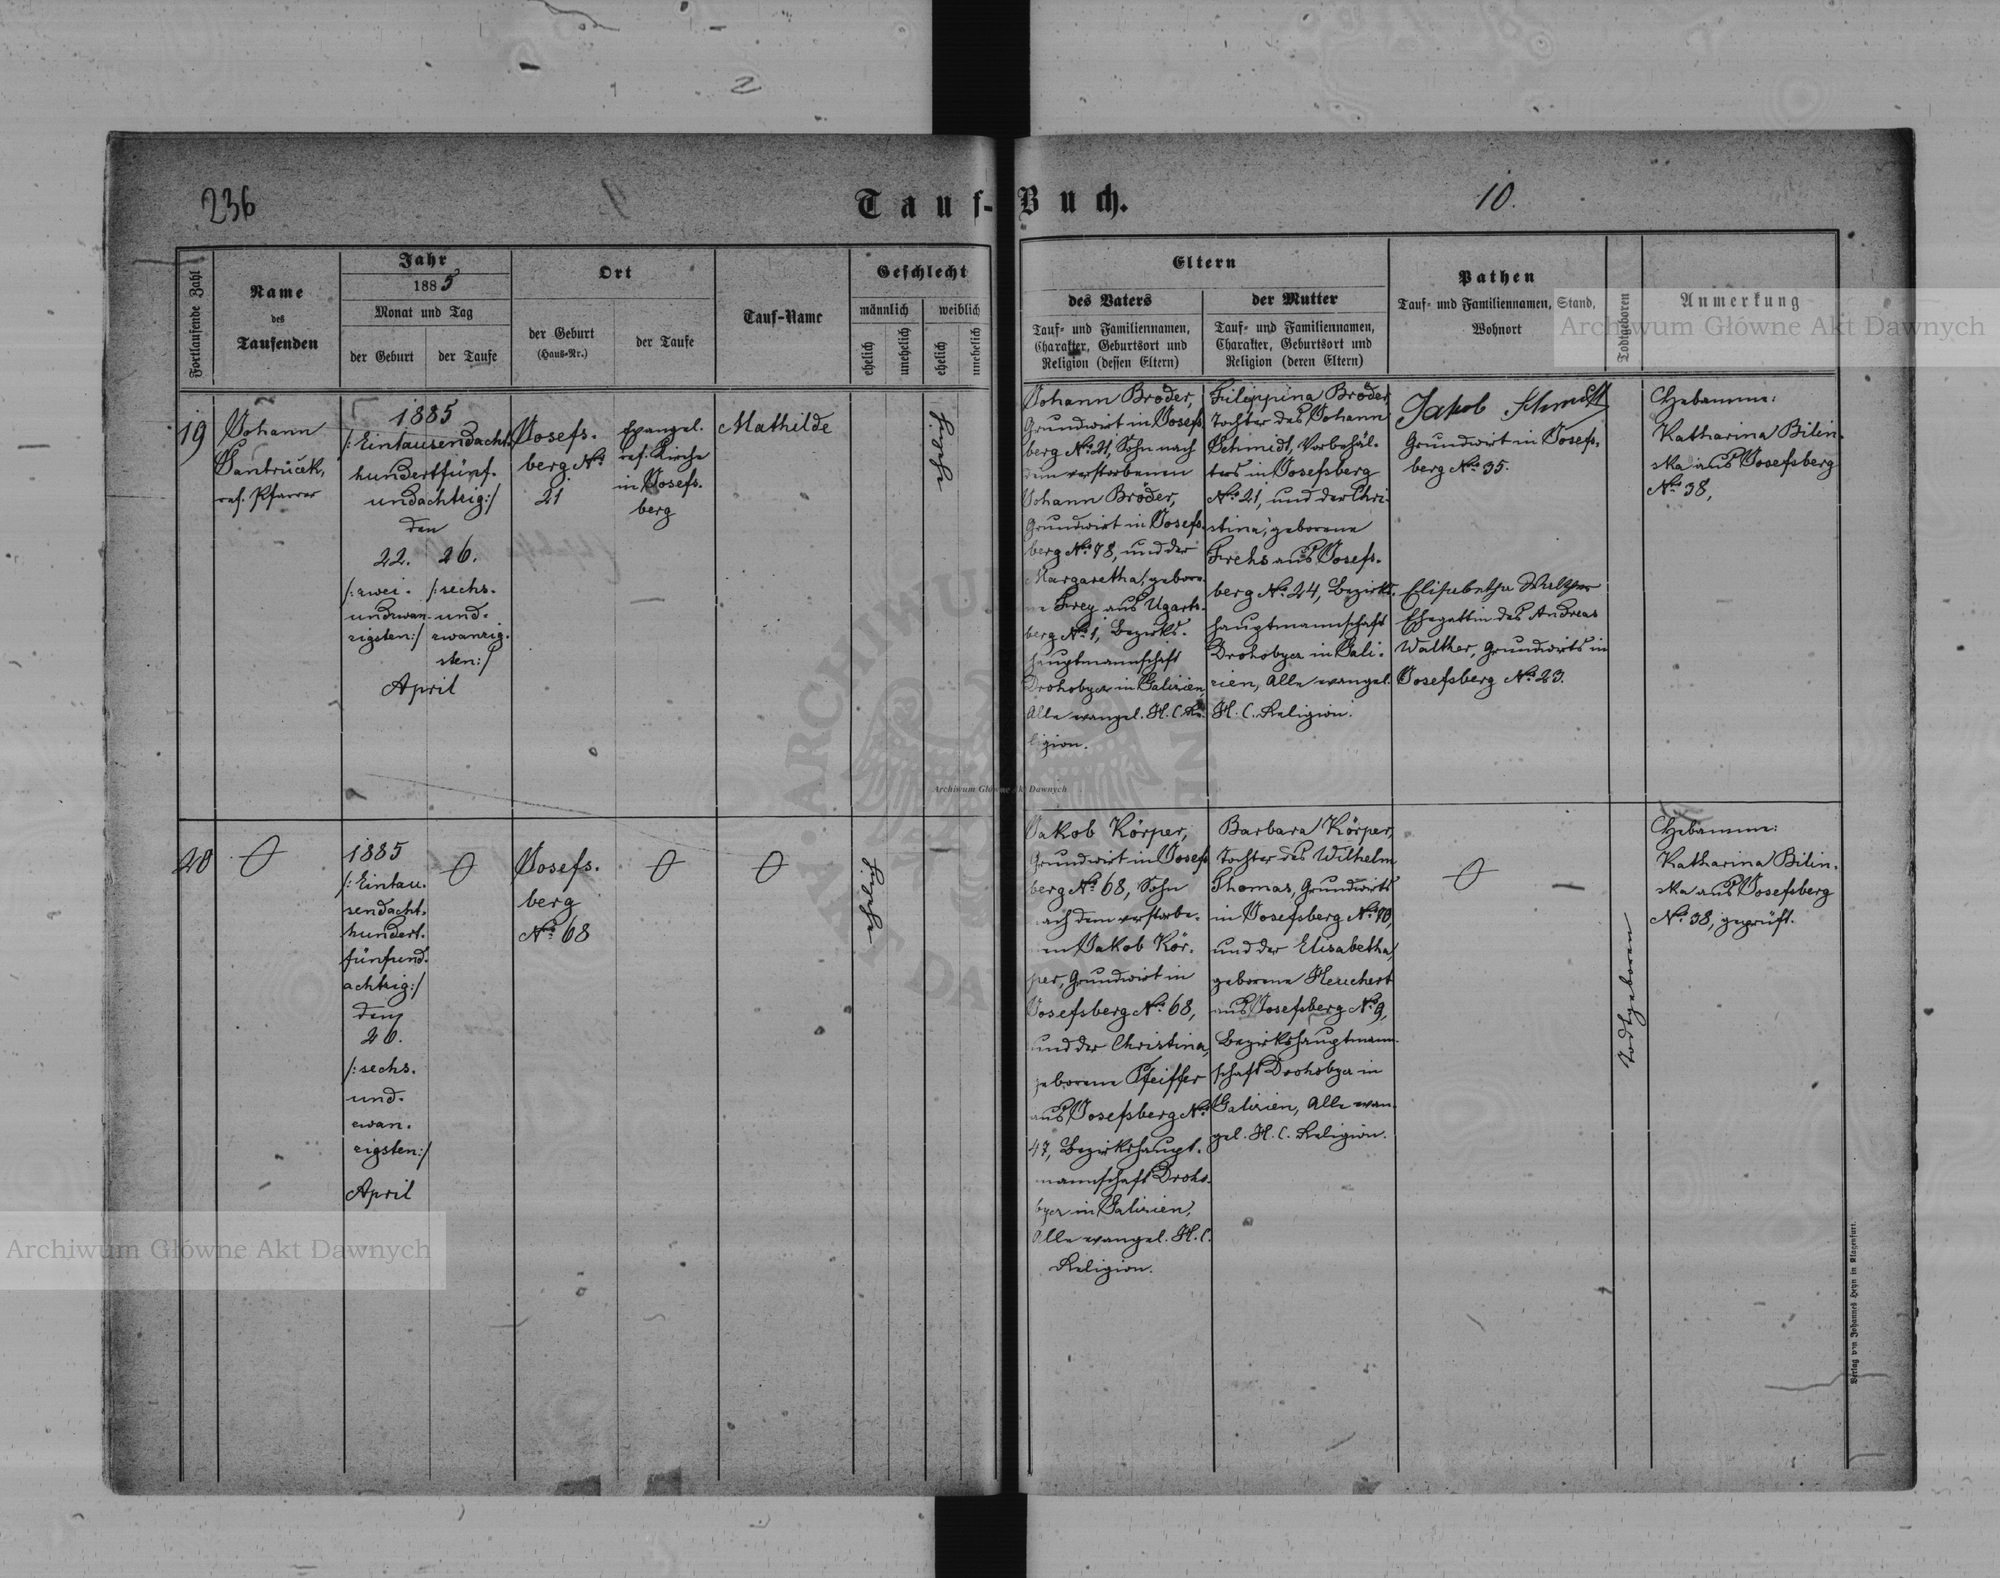 2
236
9.
Tauf-Buch.
10.
Fortlaufende Zahl
Name
des
Taufenden
Jahr
1885
Monat und Tag
der Geburt
der Taufe
Ort
der Geburt
(Haus-Nr.)
der Taufe
Tauf-Name
Geschlecht
männlich
weiblich
ehelich
unehelich
ehelich
unehelich
Eltern
des Vaters
Tauf- und Familiennamen,
Charakter, Geburtsort und
Religion (dessen Eltern)
der Mutter
Tauf- und Familiennamen,
Charakter, Geburtsort und
Religion (deren Eltern)
Pathen
Tauf- und Familiennamen, Stand,
Wohnort
Todtgeboren
Anmerkung
19
Johann
Santrůček,
ref. Pfarrer
1885
/: Eintausendacht-
hundertfünf-
undachtzig :/
den
22.
/: zwei-
undzwan-
zigsten :/
26.
/: sechs-
und-
zwanzig-
sten :/
April
Josefs-
berg No.
21
Evangel.
ref. Kirche
in Josefs-
berg
Mathilde
Johann Broder,
Grundwirt in Josefs-
berg No. 21, Sohn nach
dem verstorbenen
Johann Broder,
Grundwirt in Josefs-
berg No. 78, und der
Margaretha, gebore-
ne Frey aus Ugarts-
berg No. 1, Bezirks-
hauptmannschaft
Drohobycz in Galizien,
Alle evangel. H. C. Re-
ligion.
Filippina Broder
Tochter des Johann
Schmidt, Vorbehäl-
ters in Josefsberg
No. 21, und der Chri-
stina, geborene
Frehs aus Josefs-
berg No. 24, Bezirks-
hauptmannschaft
Drohobycz in Gali-
zien, Alle evangel.
H. C. Religion.
Jakob Schmidt
Grundwirt in Josefs-
berg No. 35.
Elisabetha Walther
Ehegattin des Andreas
Walther, Grundwirts in
Josefsberg No. 23.
Hebamme:
Katharina Bilin-
ska aus Josefsberg
No. 38,
20
1885
/: Eintau-
sendacht-
hundert-
fünfund-
achtzig :/
den
26.
/: sechs-
und-
zwan-
zigsten :/
April
Josefs-
berg
No. 68
Jakob Körper,
Grundwirt in Josefs-
berg No. 68, Sohn
nach dem verstorbe-
nen Jakob Kör-
per, Grundwirt in
Josefsberg No. 68,
und der Christina,
geborene Pfeiffer
aus Josefsberg No.
47, Bezirkshaupt-
mannschaft Droho-
bycz in Galizien,
Alle evangel. H. C.
Religion.
Barbara Körper,
Tochter des Wilhelm
Thomas, Grundwirts
in Josefsberg No. 70,
und der Elisabetha,
geborene Heuchert
aus Josefsberg No. 9,
Bezirkshauptmann-
schaft Drohobycz in
Galizien, Alle evan-
gel. H. C. Religion.
Todtgeboren
Hebamme:
Katharina Bilin-
ska aus Josefsberg
No. 38, geprüft.
Verlag von Johannes Heyn in Klagenfurt.
Archiwum Główne Akt Dawnych
Archiwum Główne Akt Dawnych
Archiwum Główne Akt Dawnych